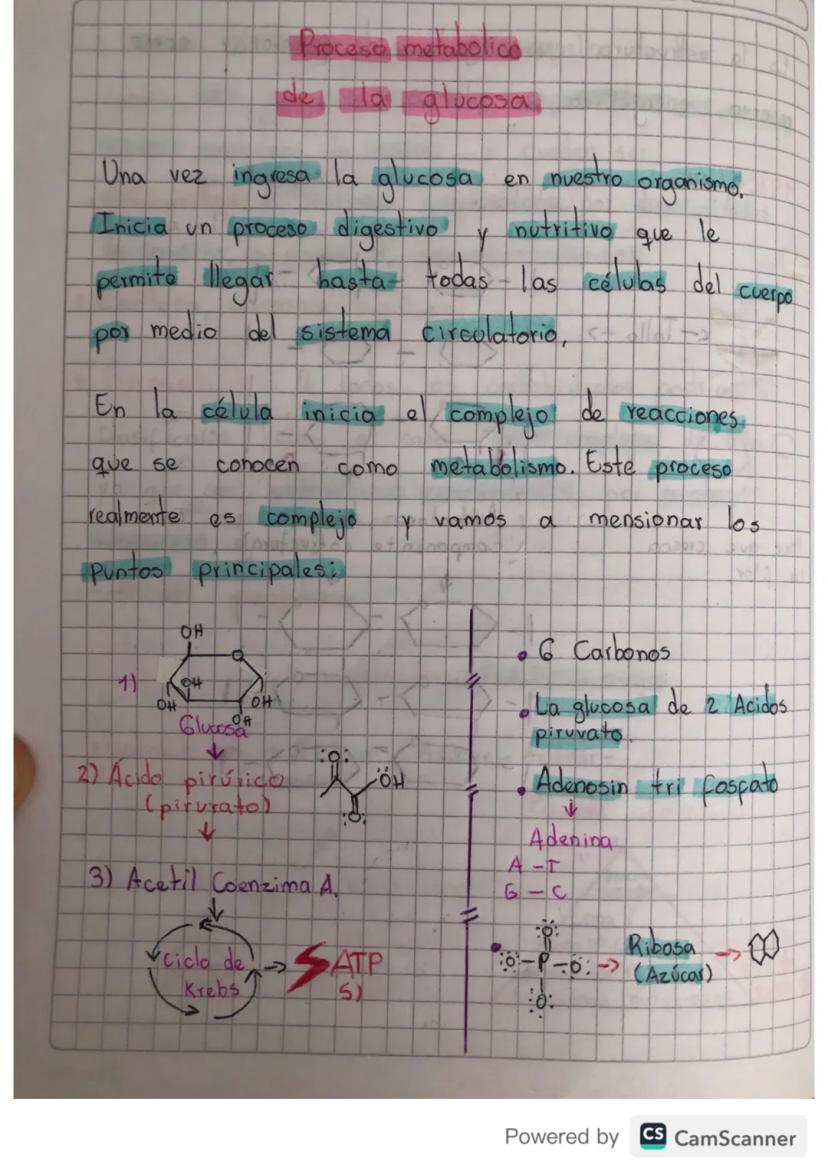 Proceso metabolico
de la glucosa
Una vez ingresa la glucosa en nuestro organismo.
Inicia un proceso digestivo y nutritivo que le
permite llegar hasta todas las células del cuerpo
por medio del sistema circulatorio,
En la célula inicia el complejo de reacciones
que se conocen como metabolismo. Este proceso
realmente es complejo y vamos a mensionar los
puntos principales:
1)
OH
O
OH
OH
OH
OH
Glucosa
↓
2) Ácido pirúvico
(piruvato)
↓
:O:
ÖH
:O:
3) Acetil Coenzima A.
↓
Ciclo de
Krebs
→ ATP
5)
• 6 Carbonos
• La glucosa de 2 Acidos
piruvato.
• Adenosin tri fosfato
↓
Adenina
A - T
G - C
• :Ö: - P - Ö: → Ribosa →
:O:
:O:
(Azúcar)
Powered by CS CamScanner